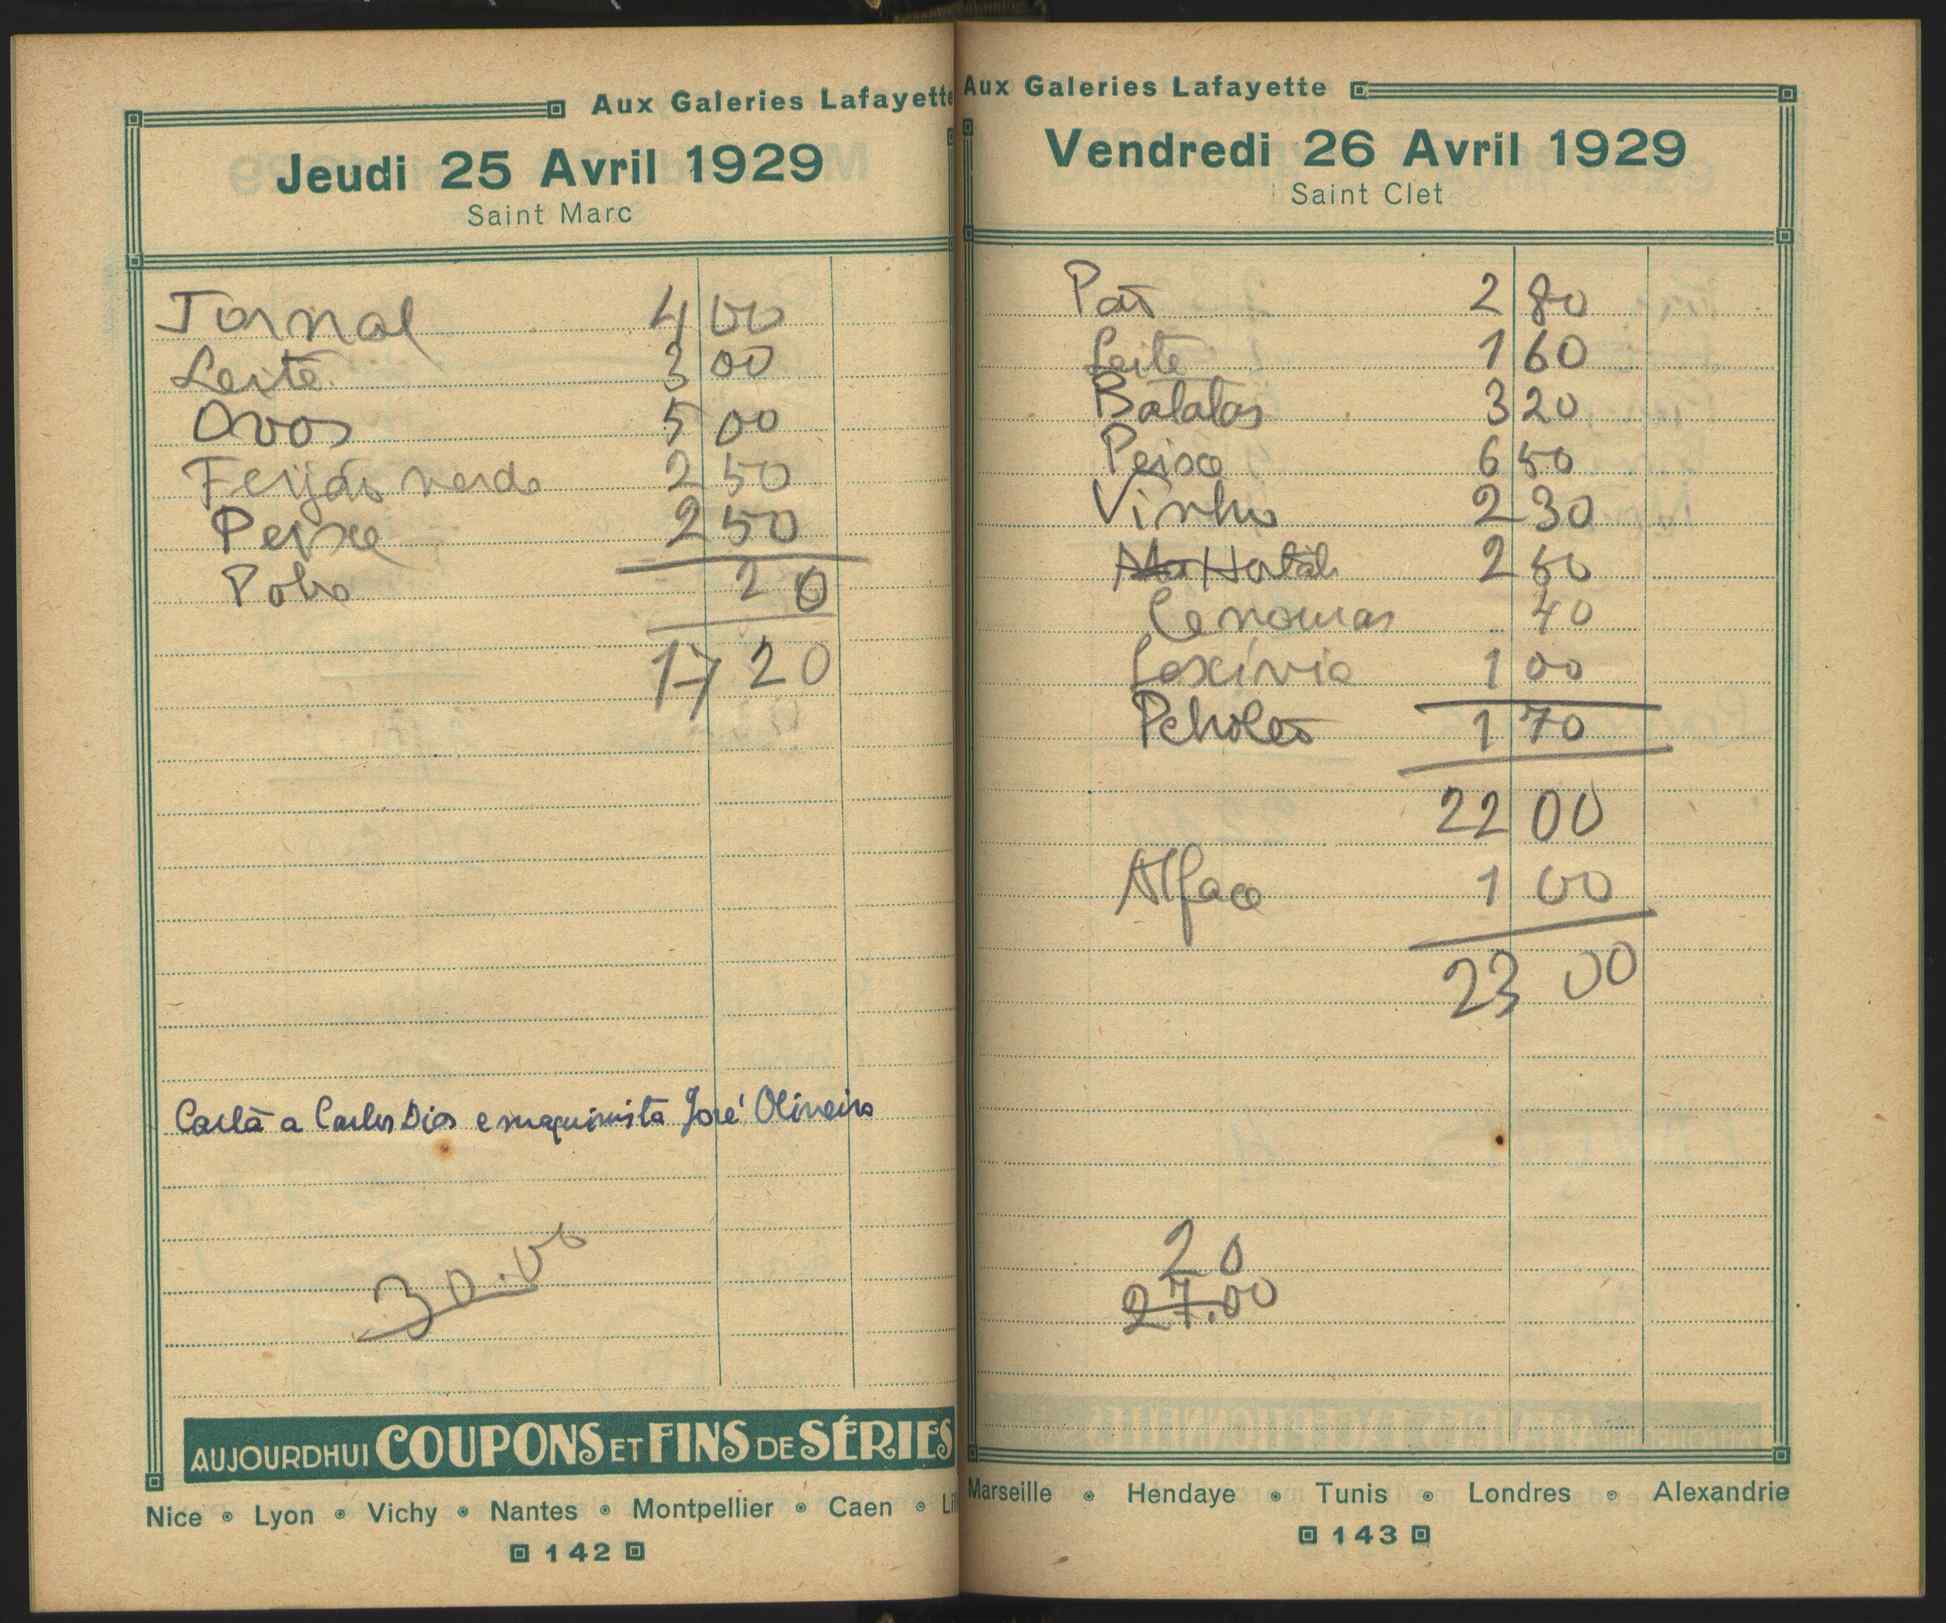 Aux Galeries Lafayette
Jeudi 25 Avril 1929
Saint Marc
Jornal 4 00
Leite 3 00
Ovos 5 00
Feijão verde 2 50
Peixe 2 50
20
17 20
Carta a Carlos Dias e maquinista José Oliveira
30.00
AUJOURDHUI COUPONS ET FINS DE SÉRIES
Nice Lyon Vichy Nantes Montpellier Caen
142
Aux Galeries Lafayette
Vendredi 26 Avril 1929
Saint Clet
Pão 2 80
Leite 1 60
Batatas 3 20
Peixe 6 50
Vinho 2 30
2 50
Cenouras 40
Lexívia 1 00
1 70
22 00
Alface 1 00
23 00
20
27.00
Marseille Hendaye Tunis Londres Alexandrie
143